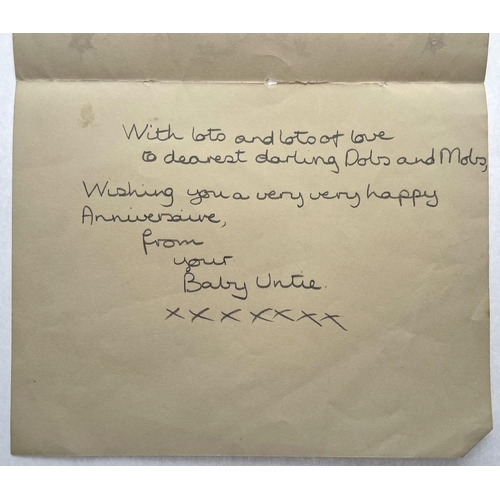 With lots and lots of love
to dearest darling Dobs and Mobs,
Wishing you a very very happy
Anniversaire,
from
your
Baby Untie.
x x x x x x x